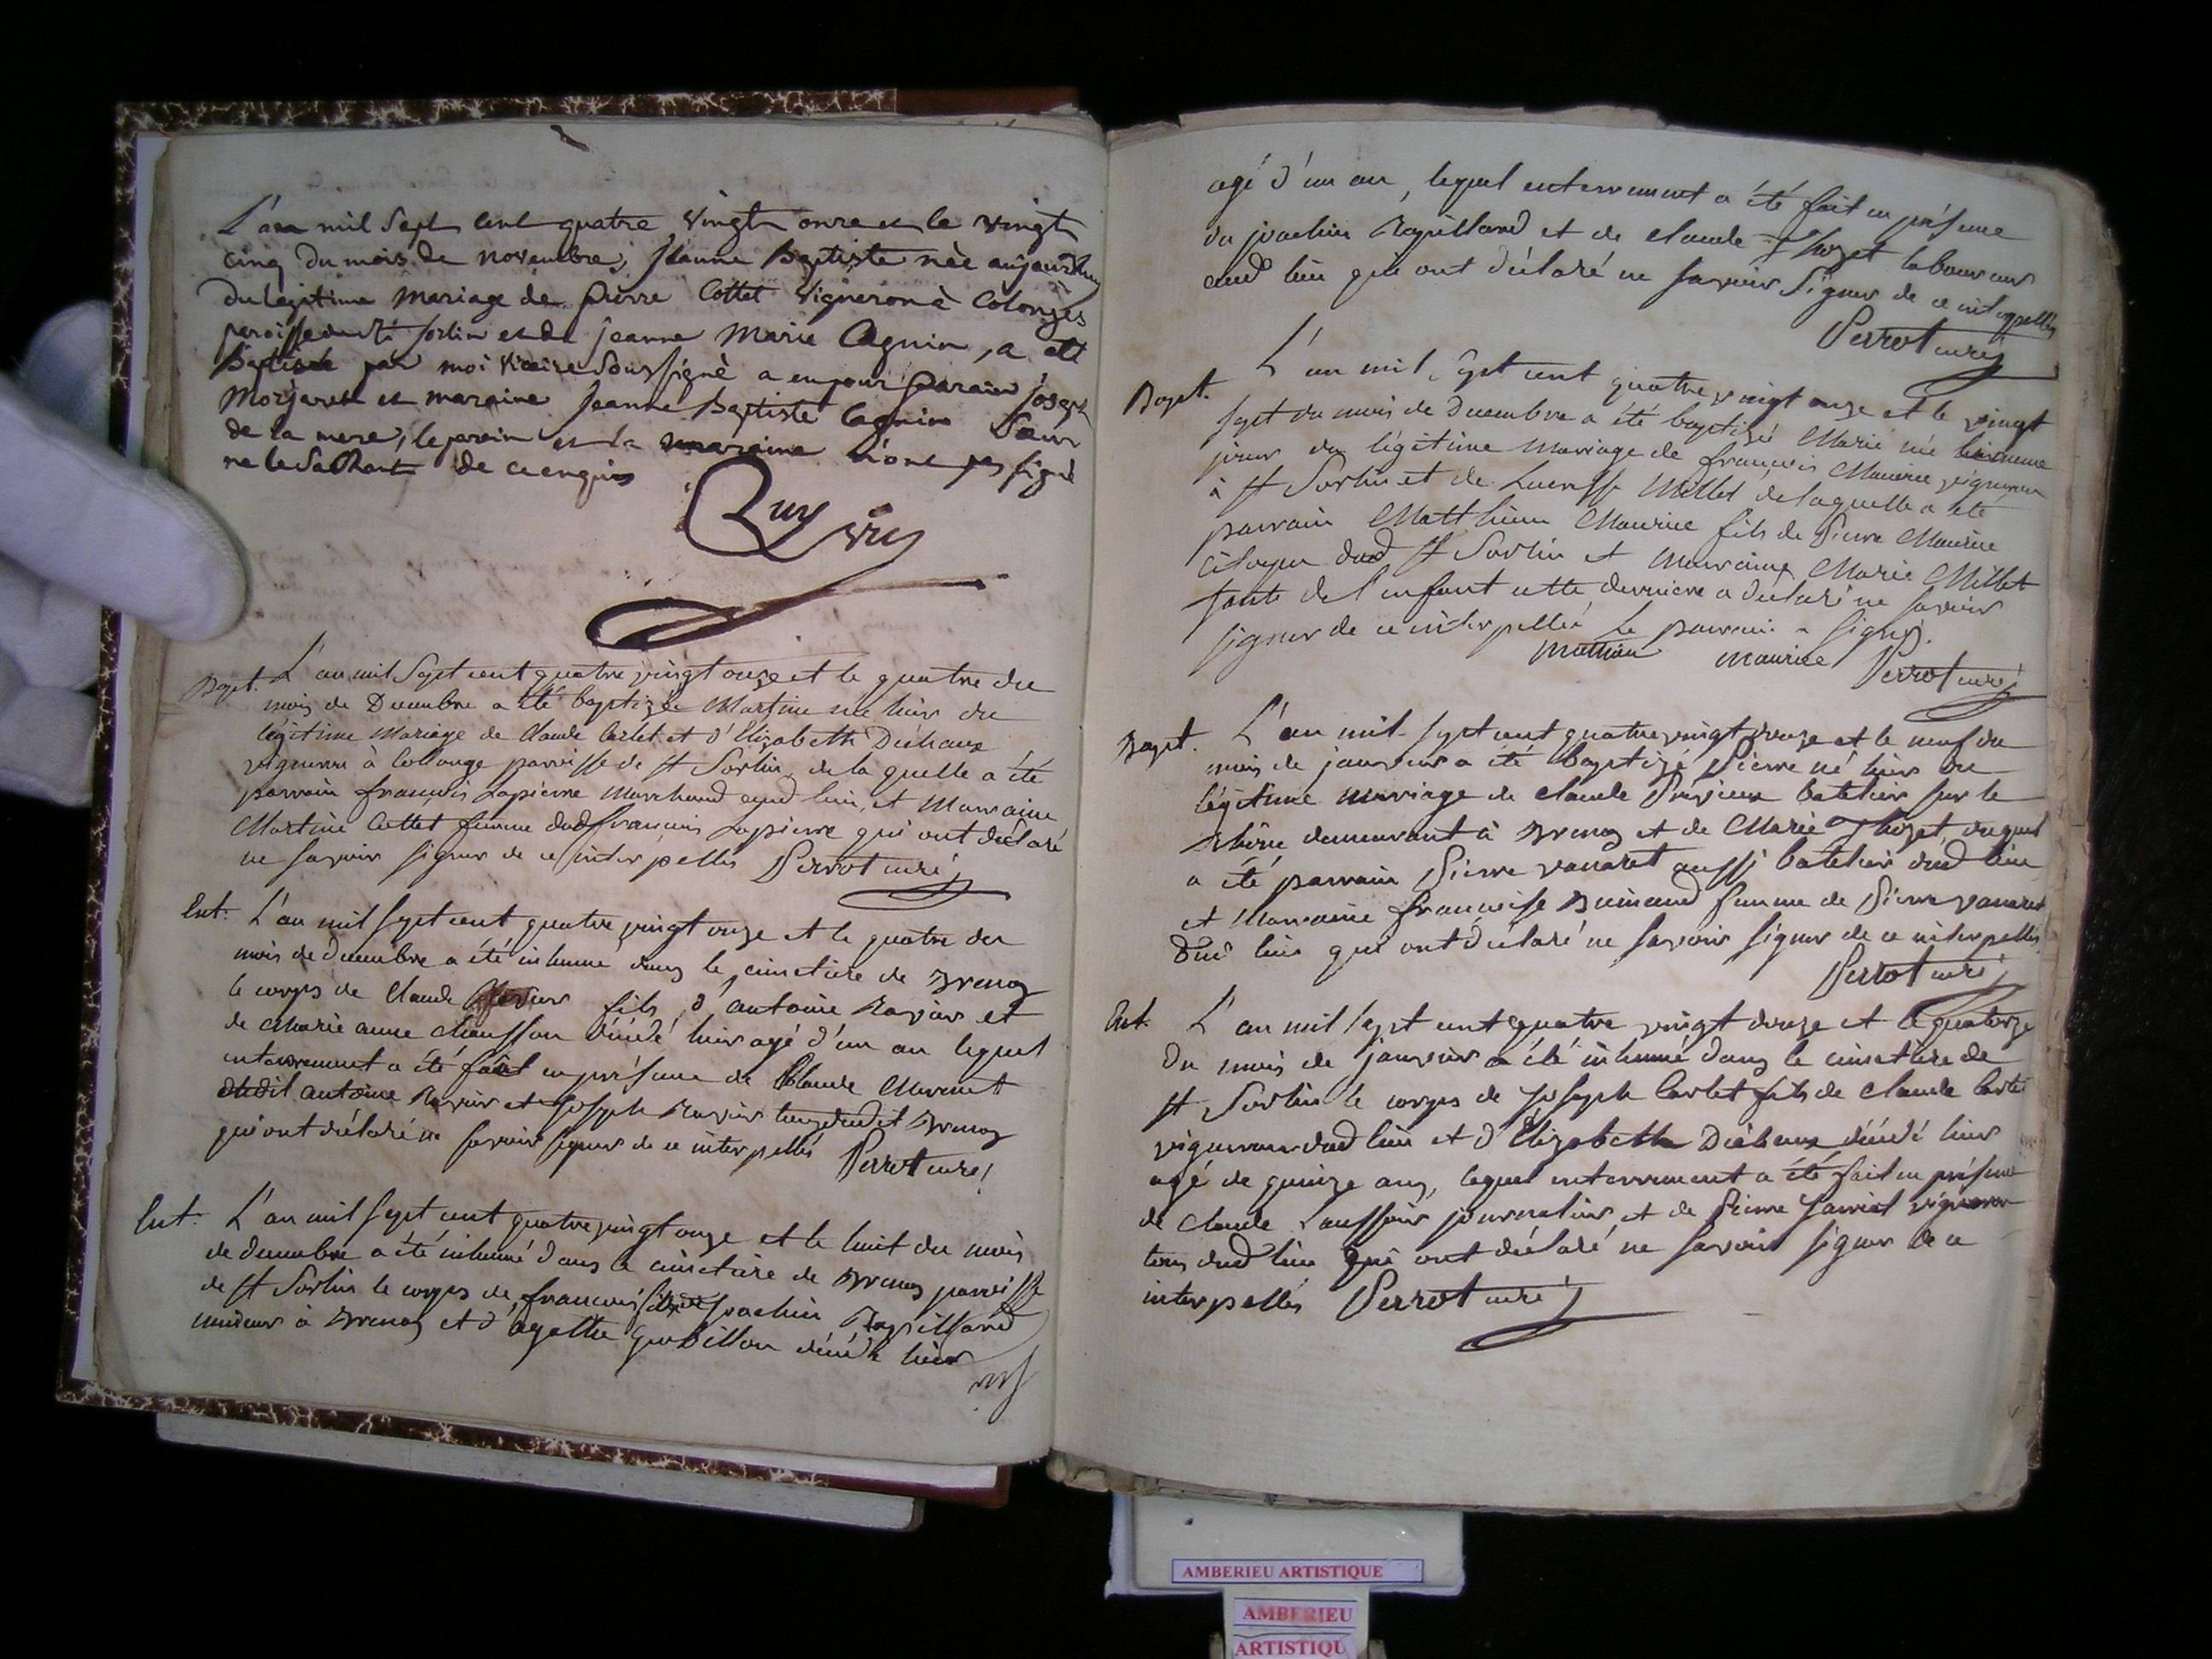 L'an mil Sept cent quatre vingt onze et le vingt
cinq du mois de novembre, jeanne Baptiste née aujourdhuy
du legitime mariage de pierre Cottet vigneron à Colonges
paroisse de st sorlin et de jeanne Marie Cagnin, a été
Baptisée par moi vicaire soussigné a eu pour parain joseph
et maraine jeanne Baptiste Cagnin Sœur
de la mere, le parain et la maraine n'ont pas signé
ne le Sachant de ce enquis
Quy vic
Bapt. L'an mil Sept cent quatre vingt onze et le quatre du
mois de Decembre a été baptizée Martine née hier du
légitime mariage de Claude Carlet et d'Elizabeth Dichaux
vigneron à Collonge paroisse de st Sorlin de laquelle a été
parrain françois Lapierre marchand aud lieu, et marraine
Martine Cottet femme dud françois Lapierre qui ont déclaré
ne savoir signer de ce interpellés Perrot curé
Ent. L'an mil sept cent quatre vingt onze et le quatre du
mois de decembre a été inhumé dans le cimetière de Brenaz
le corps de Claude Ravier fils d'antoine Ravier et
de marie anne chausson décédé hier agé d'un an lequel
enterrement a été fait en présence de Claude
dudit antoine Ravier et joseph Ravier tous dudit Brenaz
qui ont déclaré ne savoir signer de ce interpellés Perrot curé
Ent. L'an mil sept cent quatre vingt onze et le huit du mois
de decembre a été inhumé dans le cimetière de Brenaz paroisse
de st Sorlin le corps de françois fils de joachin Rapillard
à Brenaz et d'agathe Gudillon décédé hier
agé d'un an, lequel enterrement a été fait en présence
du joachin Rapillard et de claude Thozet laboureurs
aud lieu qui ont déclaré ne savoir signer de ce interpellés
Perrot curé
Bapt. L'an mil sept cent quatre vingt onze et le vingt
sept du mois de decembre a été baptizé Marie né
jour du légitime mariage de françois Maurice vigneron
à st Sorlin et de Lucresse Millet de laquelle a été
parrain Matthieu Maurice fils de Pierre Maurice
citoyen dud st Sorlin et marraine Marie Millet
tante de l'enfant cette derniere a déclaré ne savoir
signer de ce interpellée le parrain a signé.
Mathieu maurice Perrot curé
Bapt. L'an mil sept cent quatre vingt douze et le neuf du
mois de janvier a été baptizé Pierre né hier du
légitime mariage de claude batelier sur le
rhône demeurant à Brenaz et de Marie Thozet duquel
a été parrain Pierre vanaret aussi batelier dud lieu
et marraine françoise femme de Pierre vanaret
dud lieu qui ont déclaré ne savoir signer de ce interpellés
Perrot curé
Ent. L'an mil sept cent quatre vingt douze et le quatorze
du mois de janvier a été inhumé dans le cimetière de
st Sorlin le corps de joseph Carlet fils de claude Carlet
vigneron dud lieu et d'Elizabeth Dichaux décédé hier
agé de quinze ans, lequel enterrement a été fait en présence
de claude journalier et de Pierre vigneron
tous dud lieu qui ont déclaré ne savoir signer de ce
interpellés Perrot curé
AMBERIEU ARTISTIQUE
AMBERIEU
ARTISTIQU